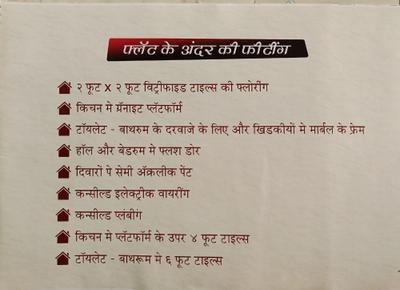 फ्लॅट के अंदर की फीटींग
२ फूट x २ फूट विट्रीफाइड टाइल्स की फ्लोरींग
किचन मे ग्रॅनाइट प्लॅटफॉर्म
टॉयलेट - बाथरुम के दरवाजे के लिए और खिडकीयों मे मार्बल के फ्रेम
हॉल और बेडरुम मे फ्लश डोर
दिवारों पे सेमी अ‍ॅक्रलीक पेंट
कन्सील्ड इलेक्ट्रीक वायरींग
कन्सील्ड प्लंबींग
किचन मे प्लॅटफॉर्म के उपर ४ फूट टाइल्स
टॉयलेट - बाथरूम मे ६ फूट टाइल्स